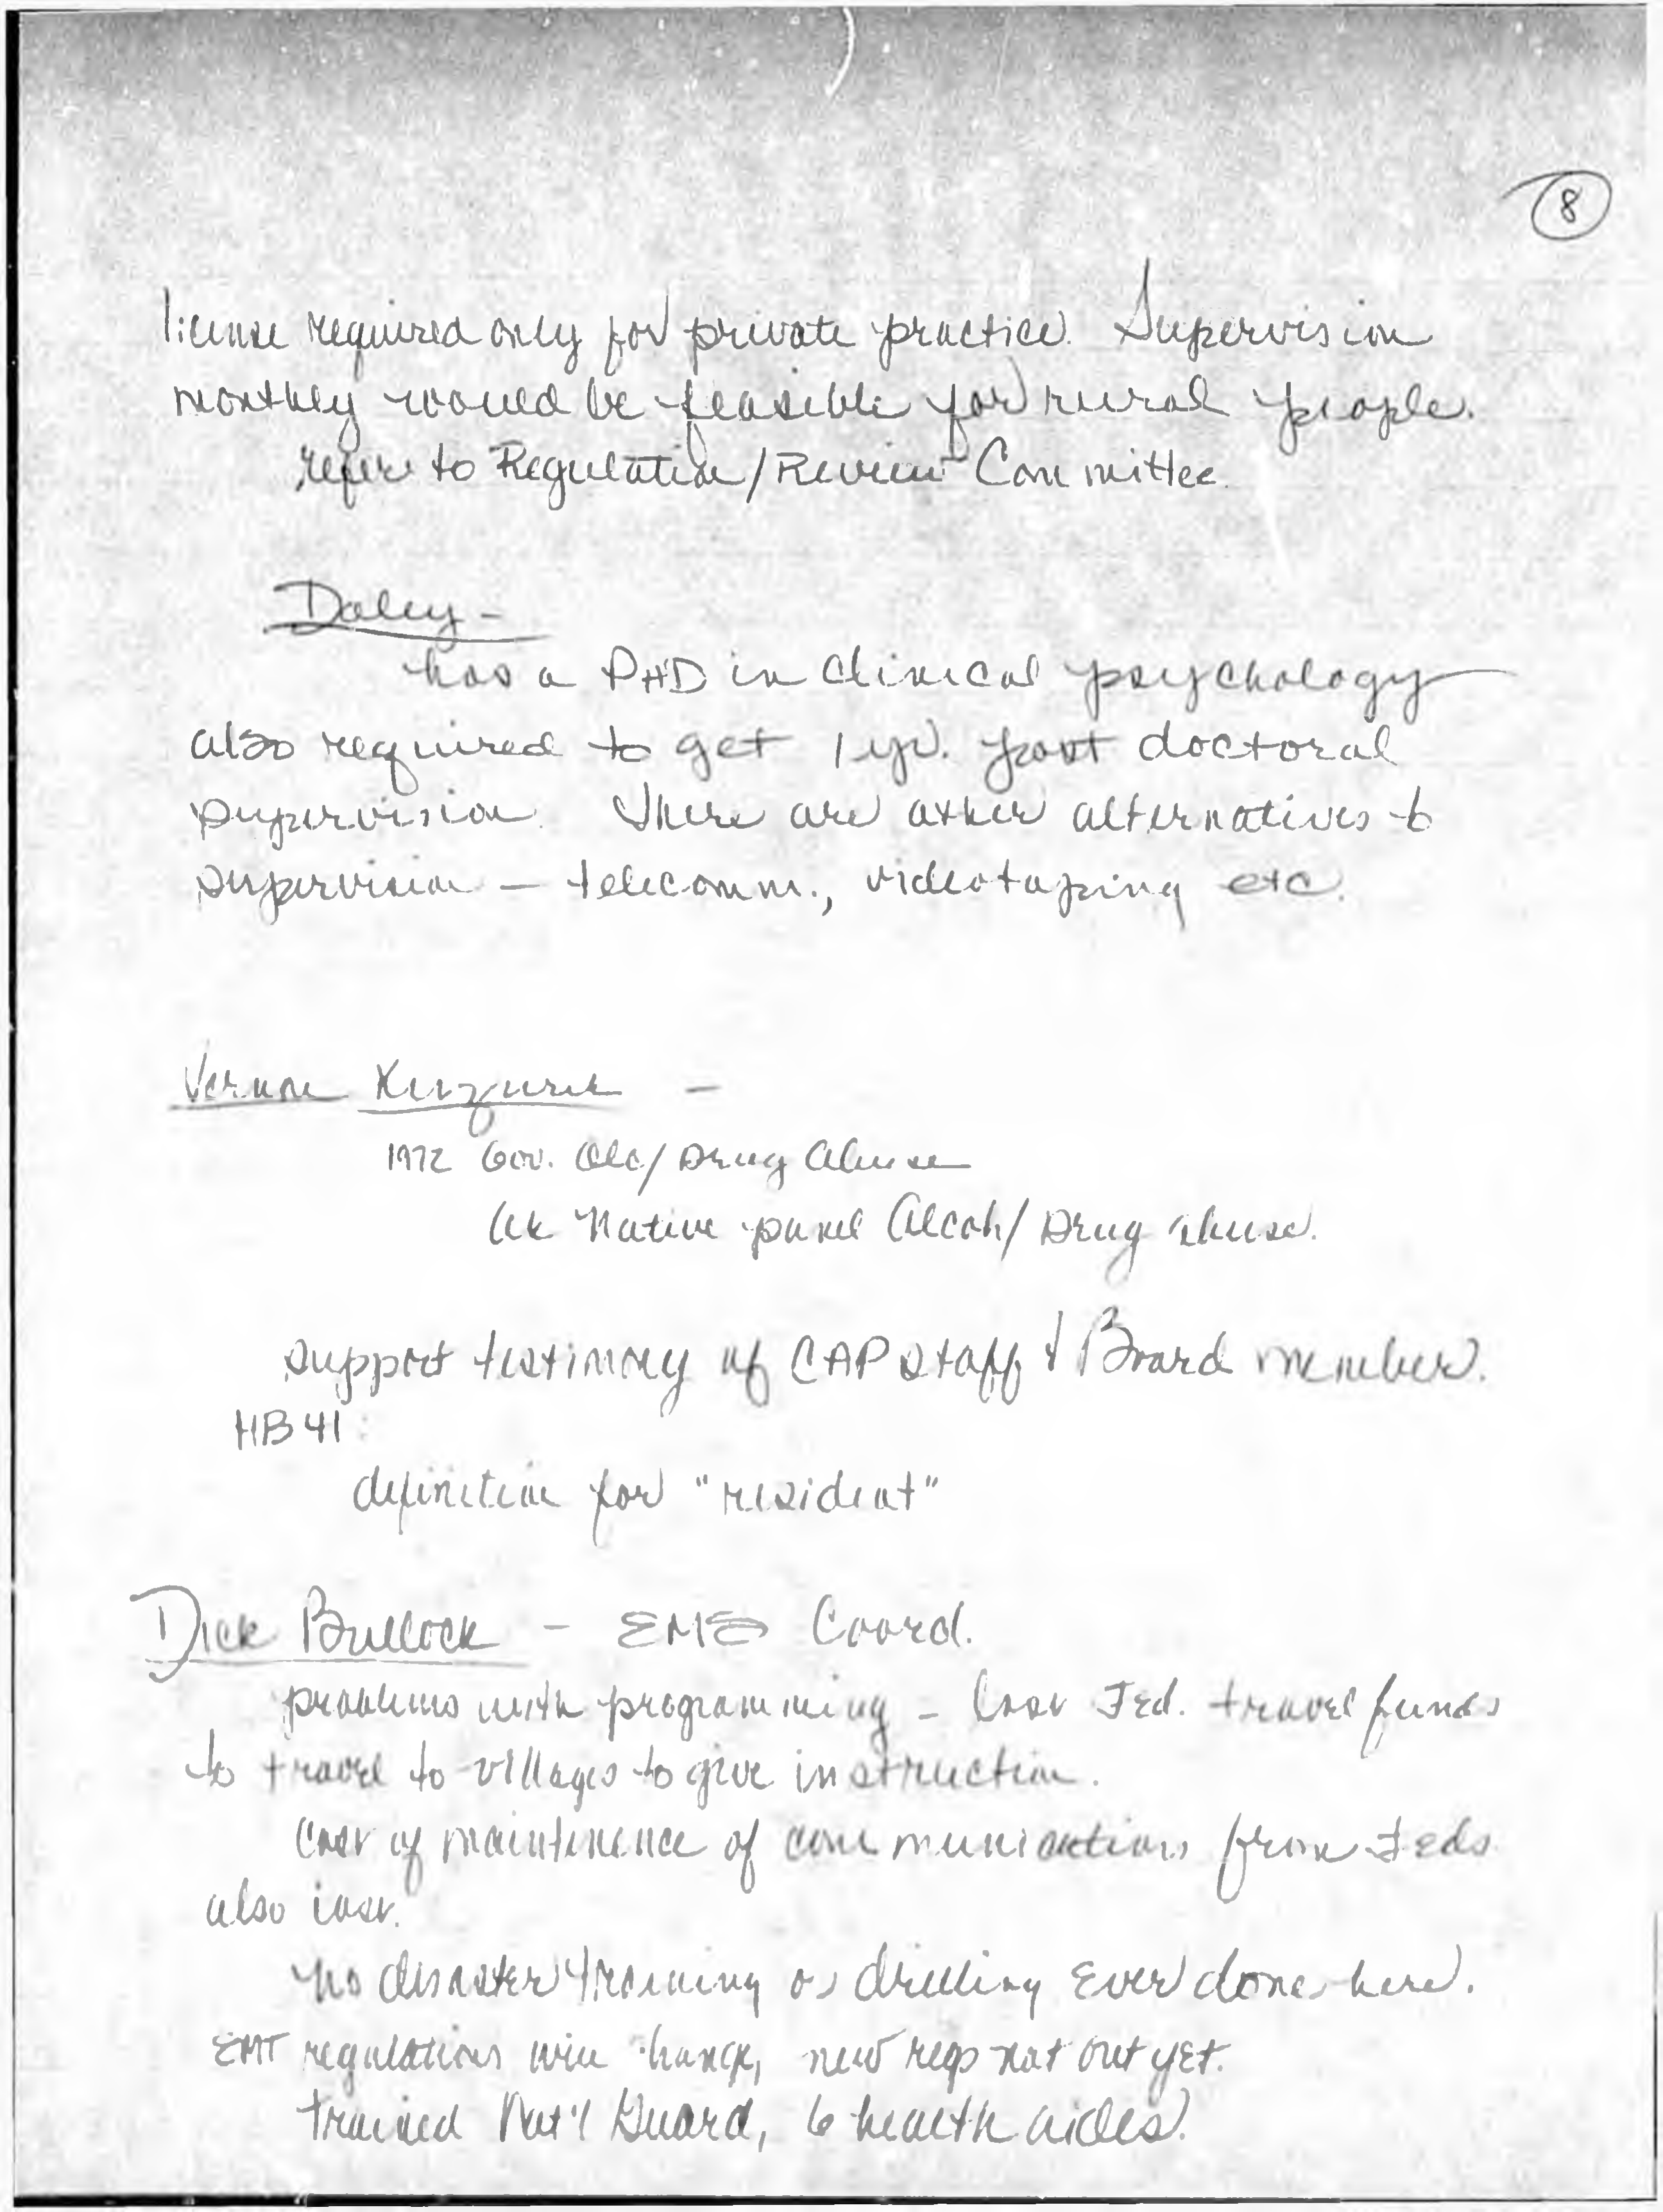 8
license required only for private practice. Supervision
monthly would be feasible for rural people.
refer to Regulation/Review Committee.
Daley -
has a PHD in Clinical psychology
also required to get 1 yr. post doctoral
supervision. There are other alternatives to
supervision — telecomm., videotaping etc.
Vernon -
1972 Gov. Alc/Drug Abuse
Ak Native panel Alcoh/Drug abuse.
support testimony of CAP staff & Board member.
HB 41:
definition for "resident"
Dick Bullock - EMS Coord.
problems with programming - lost Fed. travel funds
to travel to villages to give instruction.
Cost of maintenence of communications from Feds
also lost.
No disaster training or drilling Ever done here.
EMT regulations will change, new regs not out yet.
trained Nat'l Guard, 6 health aides.